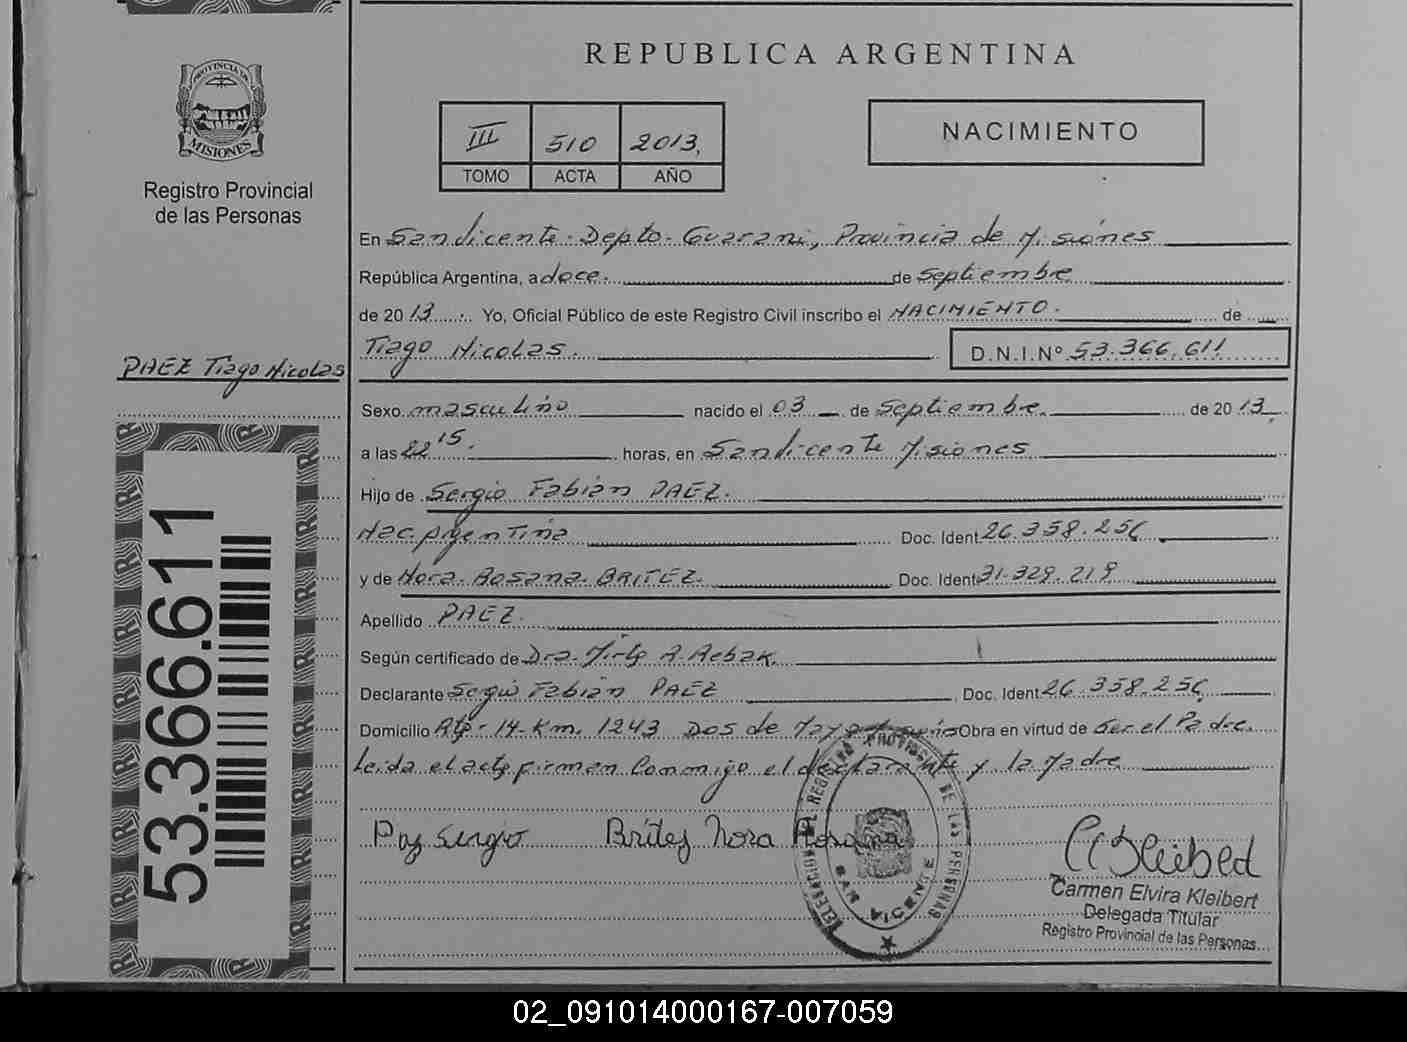 REPUBLICA ARGENTINA
PROVINCIA DE
MISIONES
Registro Provincial
de las Personas
III 510 2013
TOMO ACTA AÑO
NACIMIENTO
En San Vicente - Depto - Guarani, Provincia de Misiones
República Argentina, a doce de Septiembre
de 2013 Yo, Oficial Público de este Registro Civil inscribo el NACIMIENTO de
Tiago Nicolas. D.N.I.Nº 53.366.611
PAEZ Tiago Nicolas
Sexo masculino nacido el 03 de Septiembre de 2013
a las 22 15 horas, en San Vicente Misiones
Hijo de Sergio Fabián PAEZ.
Nac. Argentina Doc. Ident 26.358.256
y de Nora Rosana BRITEZ. Doc. Ident 31.329.219
Apellido PAEZ.
Según certificado de Dra. Mirta A.
Declarante Sergio Fabián PAEZ Doc. Ident 26.358.256
Domicilio Rta - 14 - Km. 1243 Dos de Mayo Obra en virtud de Ser el Padre.
Leida el acta firman Conmigo el declarante y la Madre
53.366.611
Paz Sergio Britez Nora Rosana
DELEGACION DEL REGISTRO PROVINCIAL DE LAS PERSONAS
SAN VICENTE
Carmen Elvira Kleibert
Delegada Titular
Registro Provincial de las Personas
02_091014000167-007059